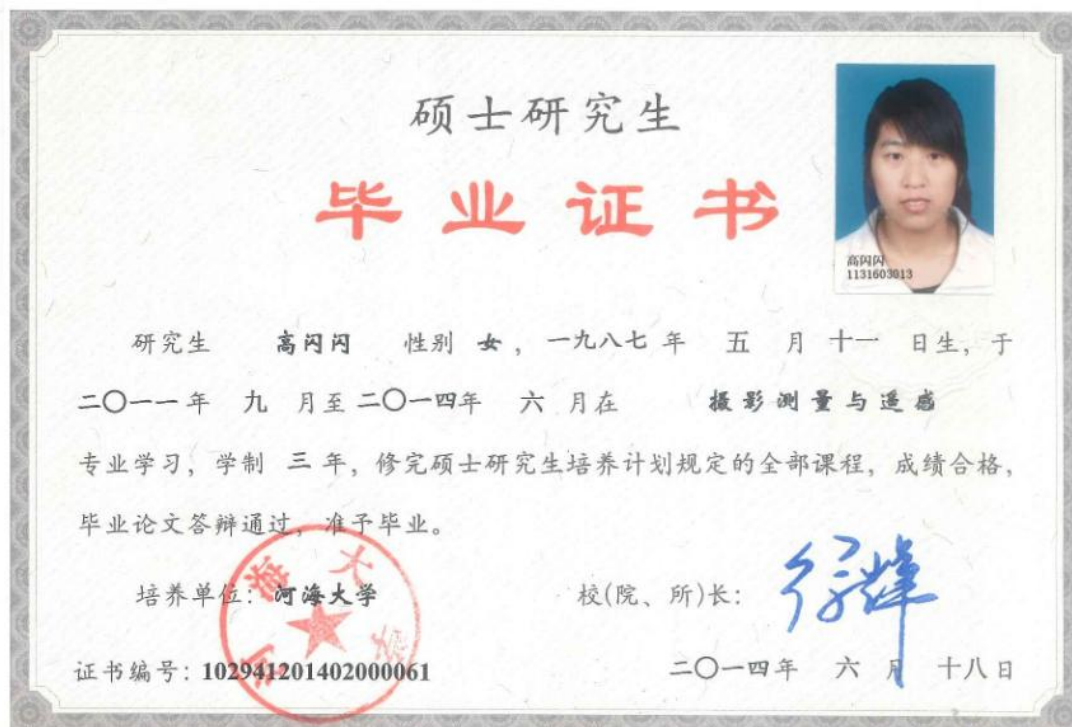 硕士研究生
毕业证书
高闪闪
1131603013
研究生 高闪闪 性别 女，一九八七 年 五 月 十一 日生，于
二〇一一年 九 月至 二〇一四年 六 月在 摄影测量与遥感
专业学习，学制 三 年，修完硕士研究生培养计划规定的全部课程，成绩合格，
毕业论文答辩通过，准予毕业。
培养单位：河海大学 校(院、所)长：
河海大学
证书编号：102941201402000061 二〇一四年 六 月 十八日